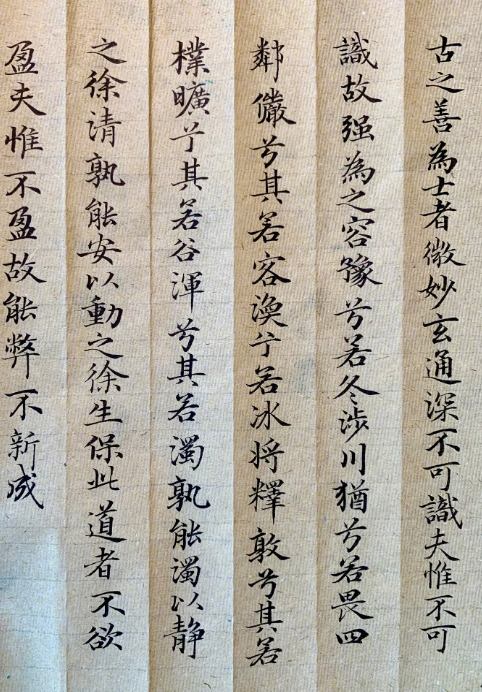 古之善為士者微妙玄通深不可識夫惟不可
識故强為之容豫兮若冬涉川猶兮若畏四
鄰儼兮其若容渙兮若冰将釋敦兮其若
樸曠兮其若谷渾兮其若濁孰能濁以静
之徐清孰能安以動之徐生保此道者不欲
盈夫惟不盈故能弊不新成